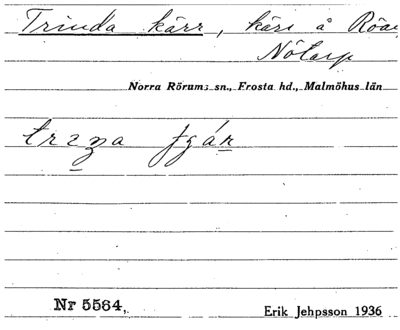 Trinda kärr, kärr å Röa
Nötarp
Norra Rörums sn., Frosta hd., Malmöhus län
Nr 5564.
Erik Jehpsson 1936